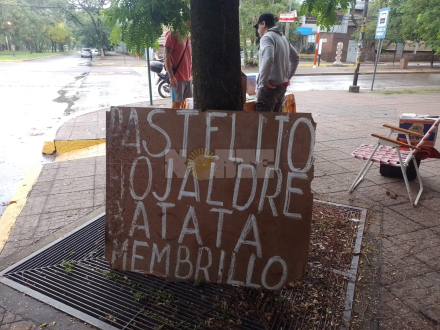 PASTELITO
HOJALDRE
BATATA
MEMBRILLO